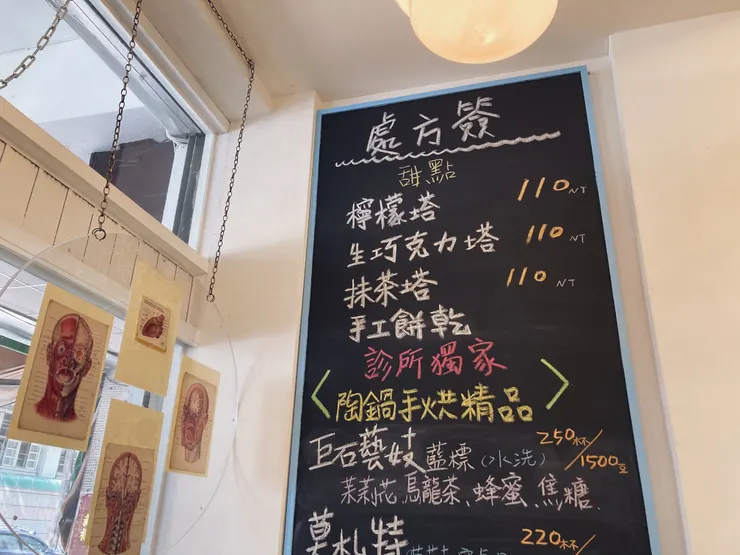 處方簽
甜點
檸檬塔 110 NT
生巧克力塔 110 NT
抹茶塔 110 NT
手工餅乾
診所獨家
〈陶鍋手烘精品〉
巨石藝妓 藍標(水洗) 250杯/1500豆
茉莉花、烏龍茶、蜂蜜、焦糖
莫札特 220杯/